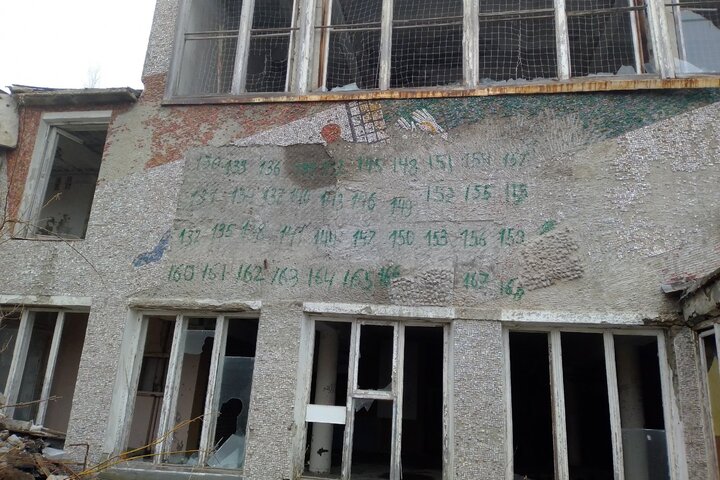 130 133 136 145 148 151 154 157
131 134 137 140 143 146 149 152 155 158
132 135 138 141 144 147 150 153 156 159
160 161 162 163 164 165 166 167 168